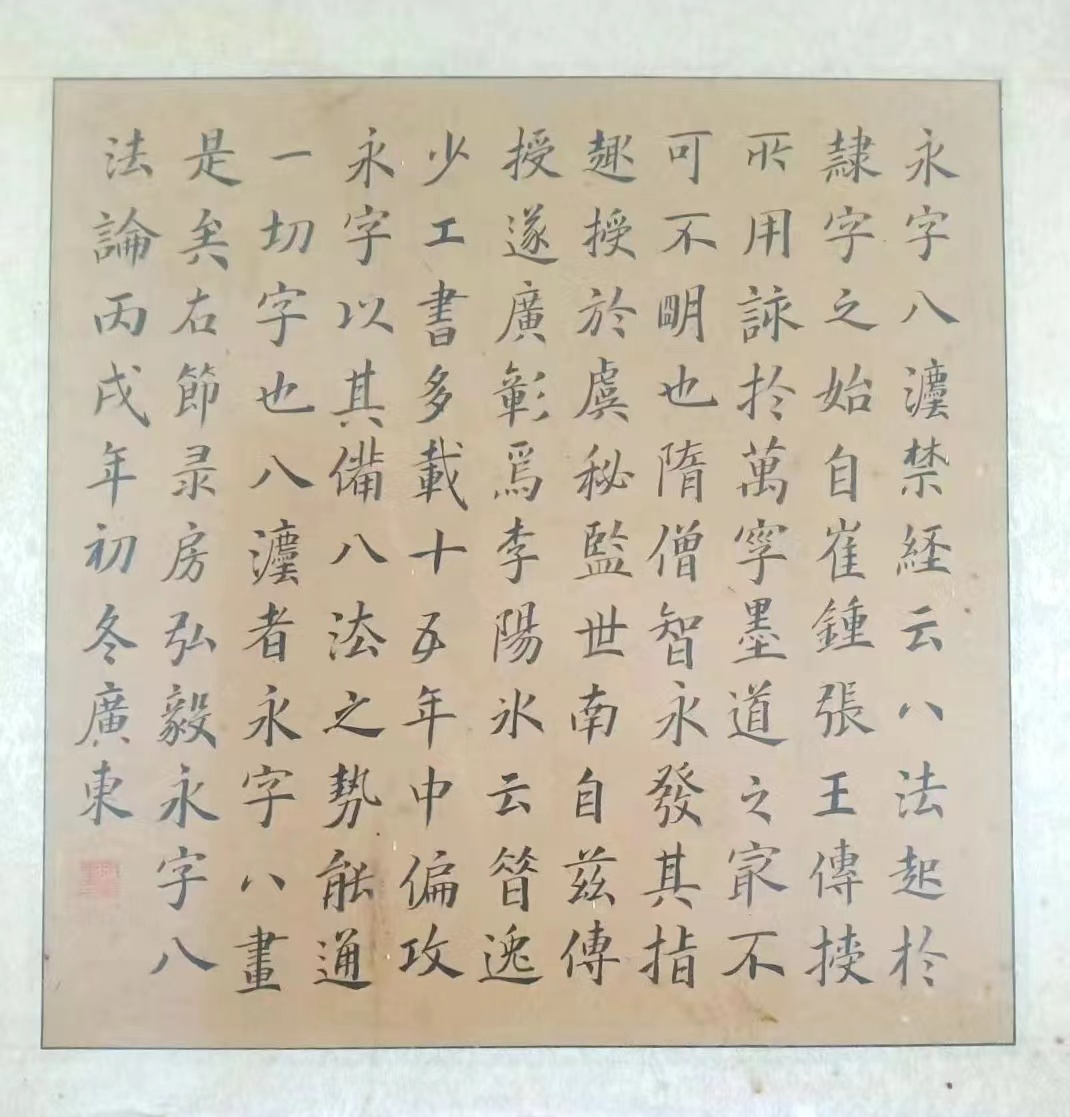 永字八灋禁经云八法起於
隷字之始自崔鍾張王傳授
所用詠扵萬字墨道之冣不
可不明也隋僧智永發其指
趣授於虞秘監世南自兹傳
授遂廣彰焉李陽冰云昔逸
少工書多載十五年中偏攻
永字以其備八法之勢能通
一切字也八灋者永字八畫
是矣右節录房弘毅永字八
法論丙戌年初冬廣東